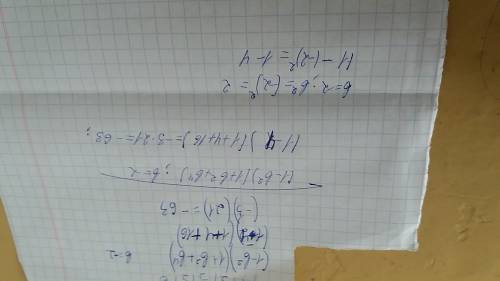 (1-b²)(1+b²+b⁴) b=2
(-3)(21)=-63
(1-b²)(1+b²+b⁴); b=2
(1-4)(1+4+16)=-3·21=-63;
b=2; b²=(-2)²=2
(1-(-2)²=1-4